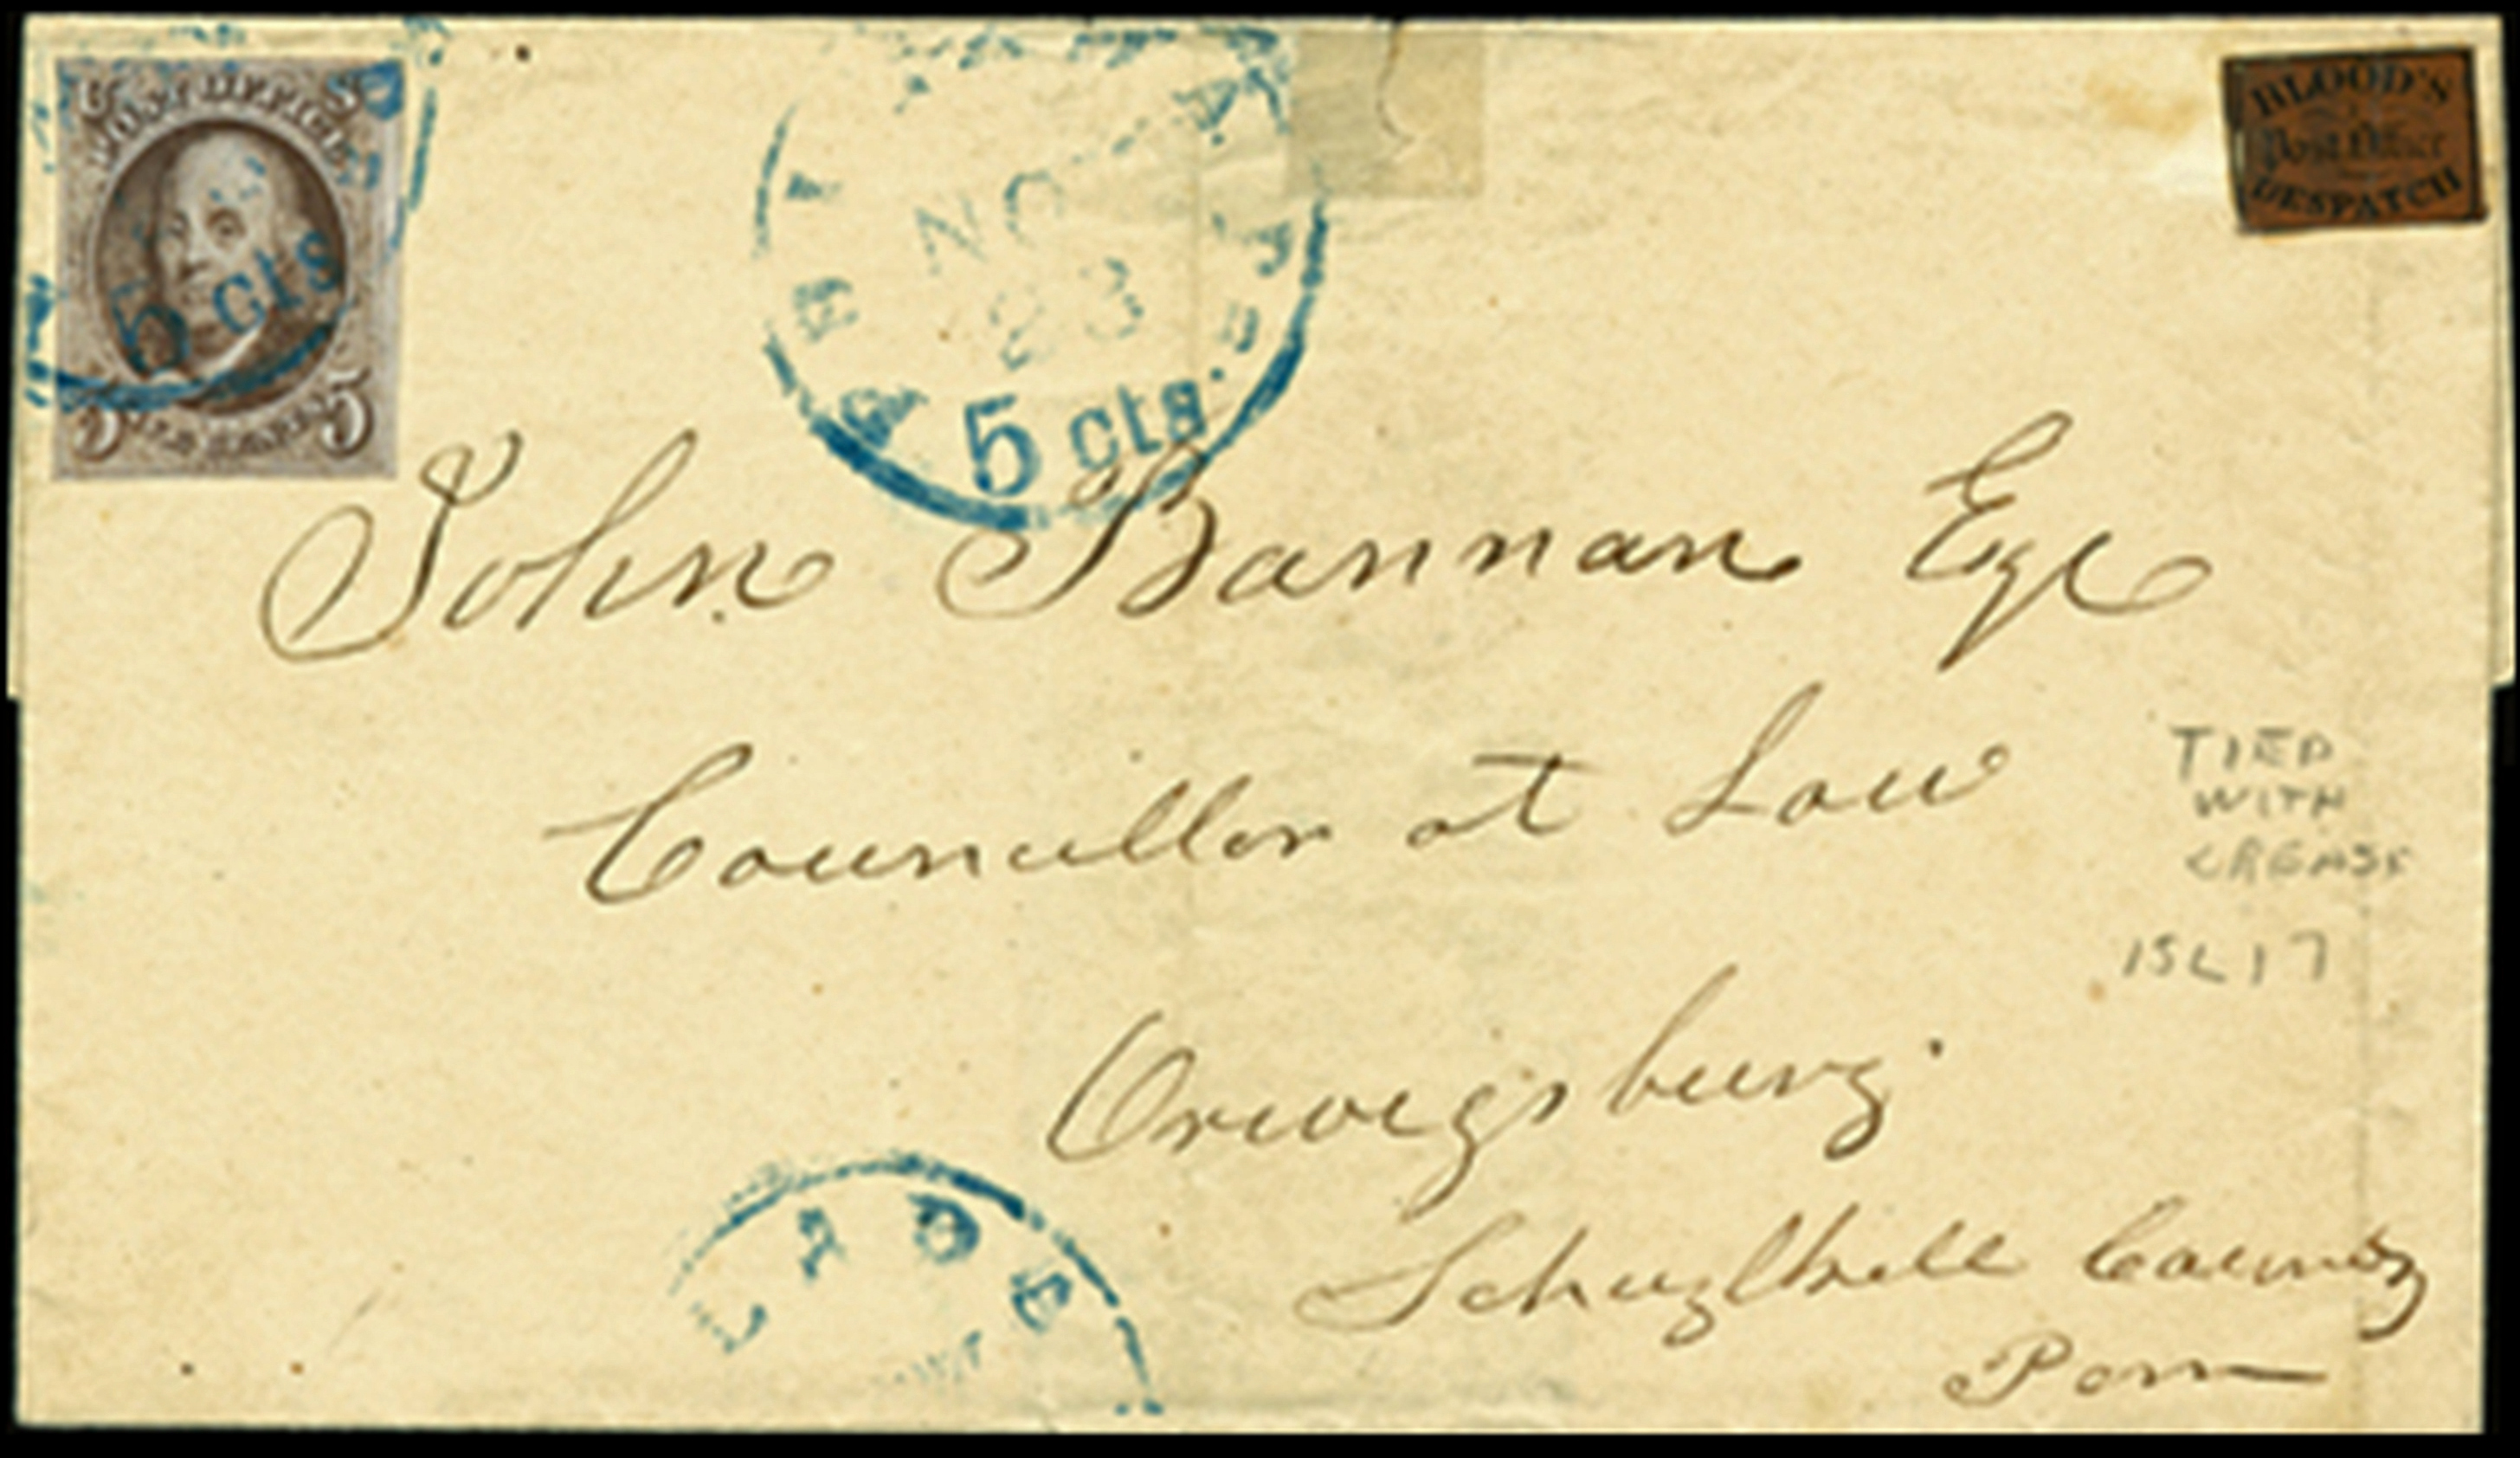 5 5
POST OFFICE
5 cts
5 5
NO
23
5 cts.
BLOOD'S
Post Office
DESPATCH
John Bannan Esqe
Councillor at Law
Orwigsburg.
Schuylkill County
Penn
TIED
WITH
CREASE
15L17